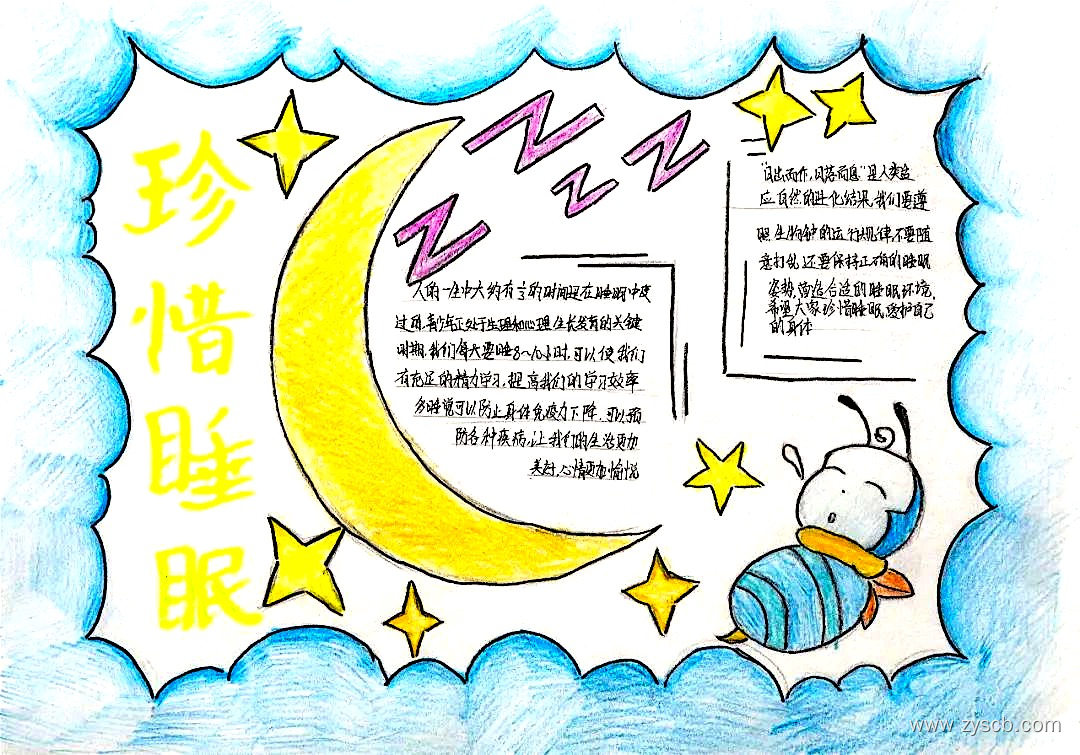 珍惜睡眠
人的一生中大约有⅓的时间是在睡眠中度
过的,青少年正处于生理和心理生长发育的关键
时期,我们每天要睡8~10小时,可以使我们
有充足的精力学习,提高我们的学习效率
多睡觉可以防止身体免疫力下降,可以预
防各种疾病,让我们的生活更加
美好,心情更加愉悦
"日出而作,日落而息"是人类适
应自然的进化结果,我们要遵
照生物钟的运行规律,不要随
意打乱,还要保持正确的睡眠
姿势,营造合适的睡眠环境,
希望大家珍惜睡眠,爱护自己
的身体
www.zyscb.com